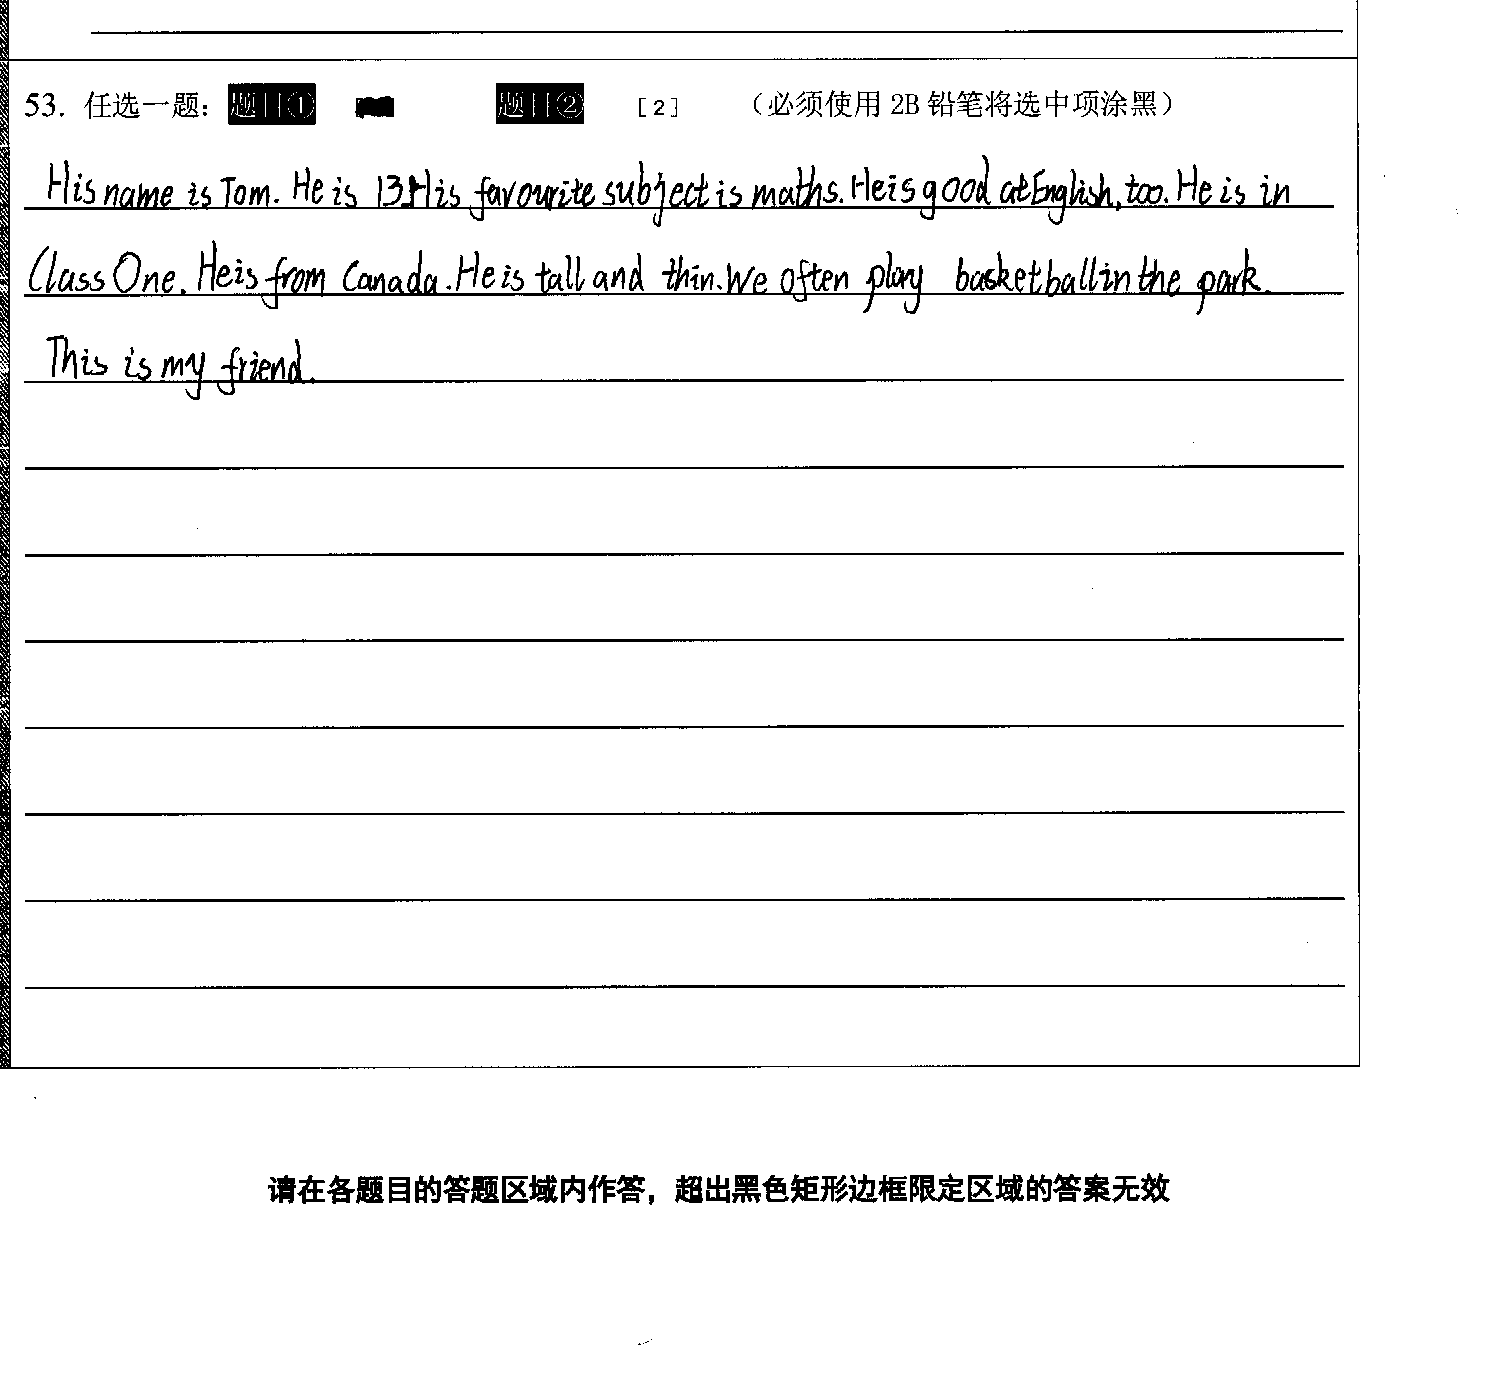 53. 任选一题: 题目① 题目② [2] （必须使用 2B 铅笔将选中项涂黑）
His name is Tom. He is 13. His favourite subject is maths. He is good at English, too. He is in
Class One. He is from Canada. He is tall and thin. We often play basketball in the park.
This is my friend.
请在各题目的答题区域内作答，超出黑色矩形边框限定区域的答案无效